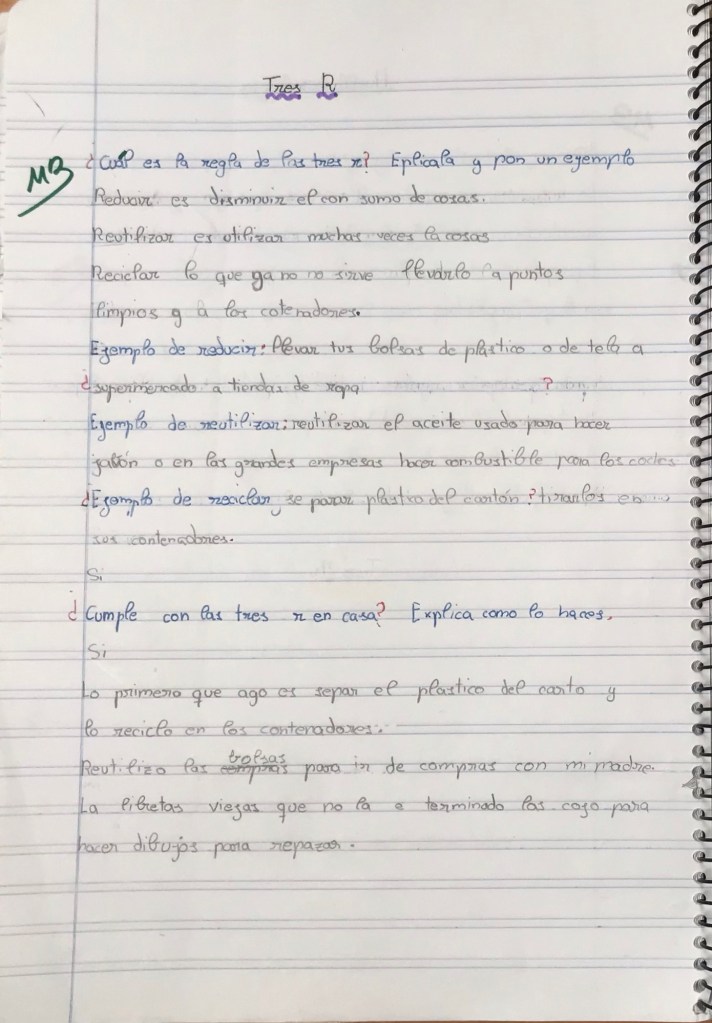 Tres R
MB
¿Cual es la regla de las tres r? Eplicala y pon un egemplo
Reducir es disminuir el con sumo de cosas.
Reutilizar es utilizar muchas veces la cosas
Reciclar lo que ga no no sirve llevarlo a puntos
limpios y a los cotenadores.
Ejemplo de reducir: llevar tus bolsas de plástico o de tela a
¿supermercado a tiendas de ropa ?
Ejemplo de reutilizar; reutilizar el aceite usado para hacer
jabón o en las grandes empresas hacer combustible para los coches
¿Ejemplo de reciclar, se parar plastico del cartón? tirarlos en
sus contenadores.
Si
¿Cumple con las tres r en casa? Explica como lo haces,
Si
Lo primero que ago es separ el plastico del carto y
lo reciclo en los contenadores.
Reutilizo las compras bolsas para ir de compras con mi madre.
La libretas viegas que no la e terminado las cojo para
hacer dibujos para repazar.